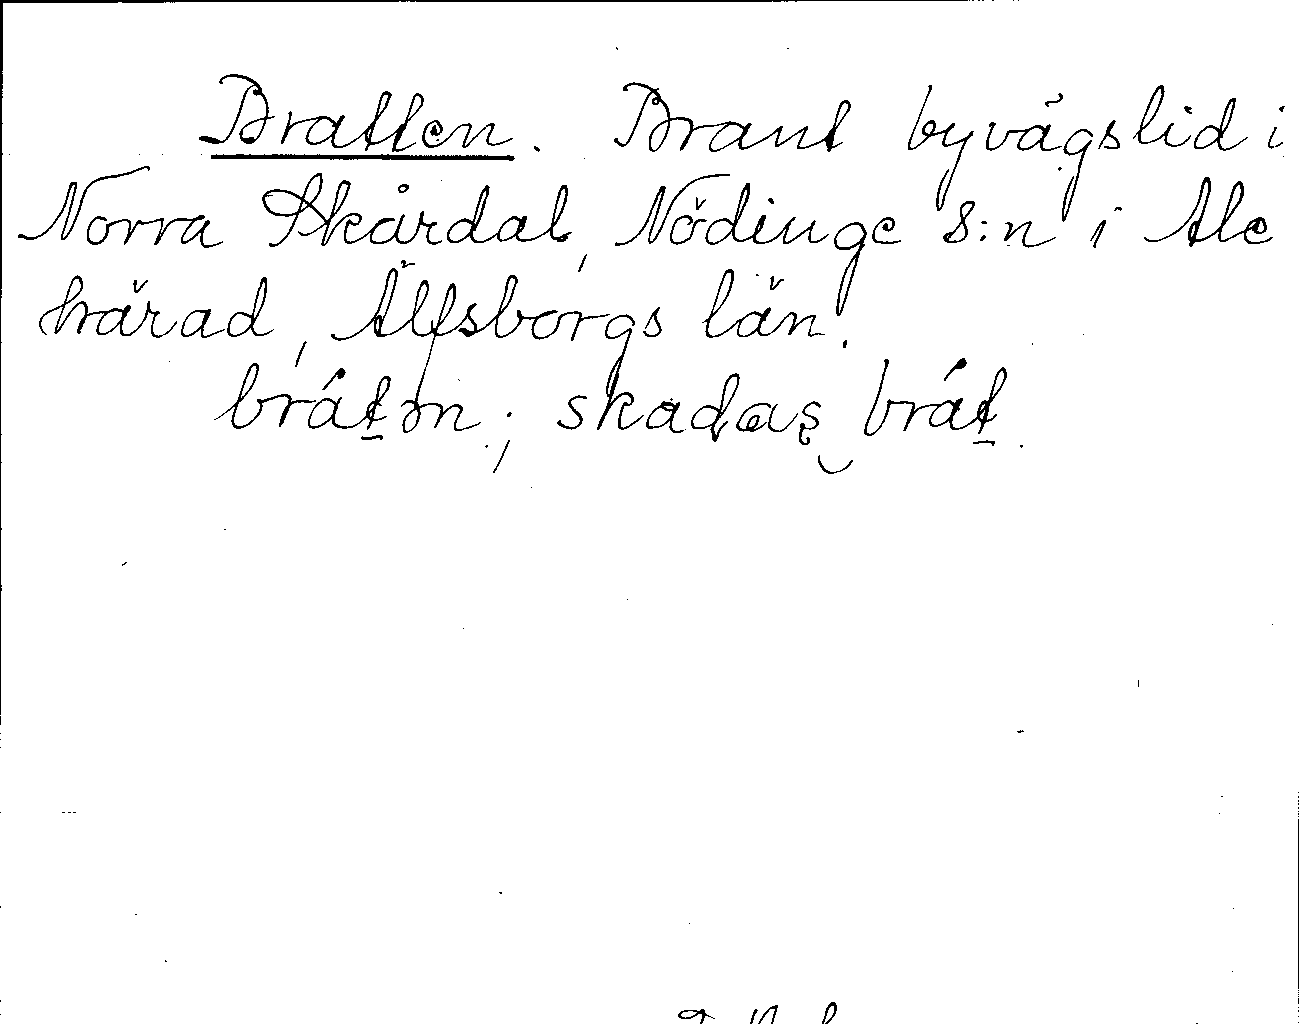 Bratten. Brant byvägslid i
Norra Skårdal, Nödinge s:n i Ale
härad, Älfsborgs län.
bráṯən; skadas̨‿bráṯ.